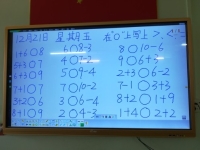 12月21日 星期五 在"○"上写上>、<
6○8-3 8○10-6
1+6○8 4○9-2 9○6+3
5+3○7 5○9-4 2+3○6-2
6+3○9 7○10-2 3+1○7-3
7+1○7 6○3-6 8+2○1+9
3+2○6 2○4-3 1+4○2+2
8+1○9